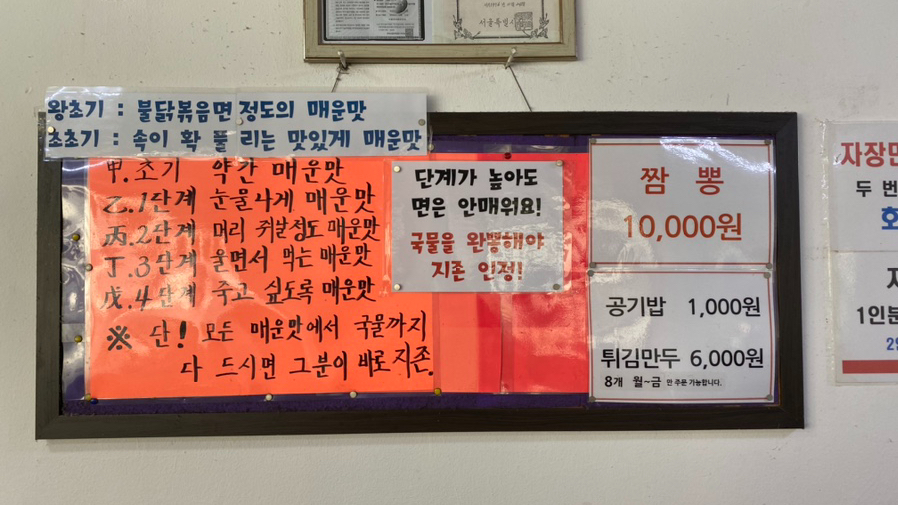 서울특별시
왕초기 : 불닭볶음면 정도의 매운맛
초초기 : 속이 확 풀 리는 맛있게 매운맛
甲.초기 약간 매운맛
乙.1단계 눈물나게 매운맛
丙.2단계 머리 쥐날정도 매운맛
丁.3단계 울면서 먹는 매운맛
戊.4단계 죽고 싶도록 매운맛
※ 단! 모든 매운맛에서 국물까지
다 드시면 그분이 바로 지존.
단계가 높아도
면은 안매워요!
국물을 완뽕해야
지존 인정!
짬 뽕
10,000원
공기밥 1,000원
튀김만두 6,000원
8개 월~금 만 주문 가능합니다.
두 번
1인분